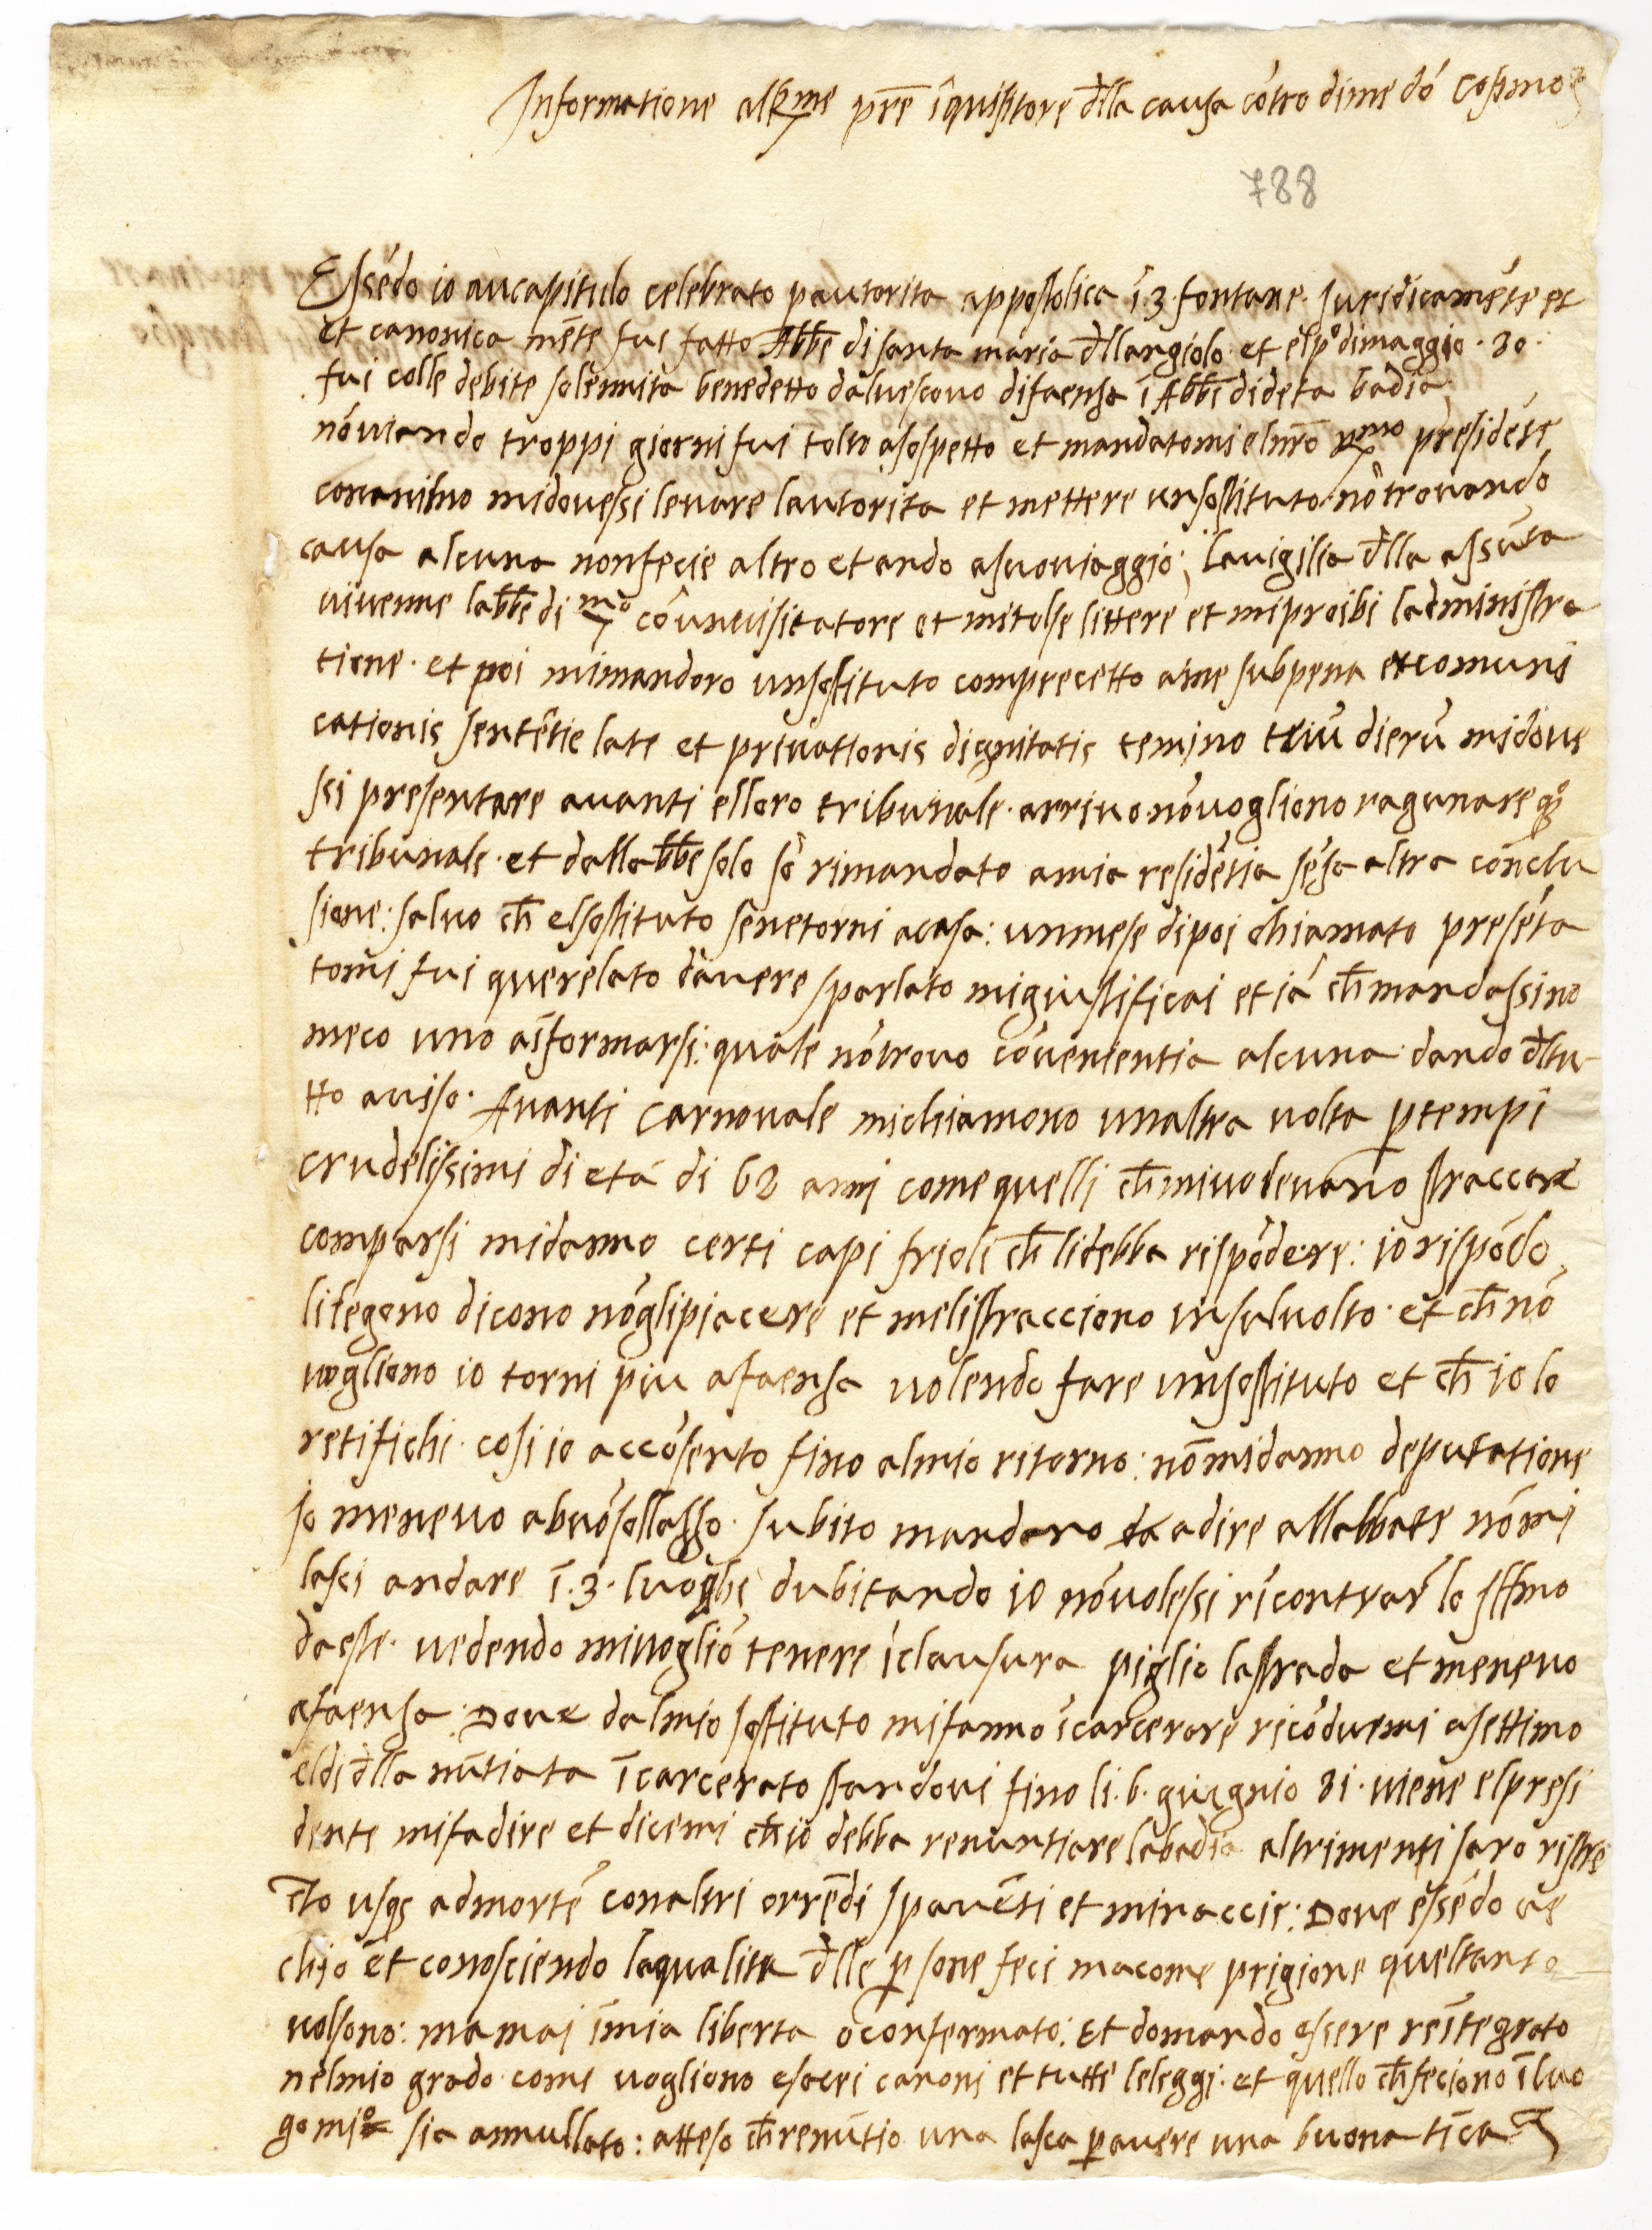 Informatione al R.me pre īquisitore dlla causa cōtro dime dō Cosimo
788
Essēdo io aucapitulo celebrato pautorita appostolica ī.3.fontane. Iuridicamēte et
et canonica mēte fui fatto Abbe disanta maria dllangiolo et elpº dimaggio .80.
fui colle debite solēnnita benedetto dalvescovo difaensa ī Abbe dideta badia
nōviando troppi giorni fui tolto asospetto et mandatomi elnrō Rmo presidēte
conanimo midovessi levare lautorita et mettere unsostituto nōtrovando
causa alcuna nonfecie altro et ando asuoviaggio: lavigilia dlla assūta
vivenne labbe di mo cōunvisitatore et mitolse littere et miproibi ladministra
tione. et poi mimandoro unsostituto comprecetto ame subpena excomuni
cationis sentētie late et privationis dignitatis temino triū dierū midove
ssi presentare avanti elloro tribunale. arrivo nōvogliono ragunare qº
tribunale. et dallabbe solo sō rimandato amia residētia sēsa altra conclu
sione: salvo ch elsostituto senetorni acasa: unmese dipoi chiamato presēta
tomi fui querelato davere sparlato migiustificai etiā chmandassino
meco uno aīformarsi: quale nōtrovo cōvenientia alcuna dando dltu-
tto aviso. Avanti carnovale michiamono unaltra volta ptempi
crudelissimi di etá di 62 anni come quelli chmivolevano straccare
comparsi midanno certi capi frioli ch lidebba rispōdere: io rispōdo
lilegono dicono nōglipiacere et melistracciono insulvolto. et chnō
vogliono io torni piu afaensa volendo fare unsostituto et ch io lo
retifichi. cosi io accōsento fino almio ritorno: nōmidanno deputatione
io menevo abuōsollasso. subito mandano adire allabbate nōmi
lasci andare ī.3.luoghi dubitando io nōvolessi ricontrar lo Illmo
daeste. vedendo mivogliō tenere īclausura piglio lastrada et menevo
afaensa: Dove dalmio sostituto mifanno īcarcerare ricōduemi asettimo
eldi dlla nūtiata īcarcerato standovi fino li.6.giugnio 81. viene elpresi
dente mifadire et dicemi chio debba renuntiare labadia altrimenti saro ristre
tto usqs admortē conaltri orrēdi spavēti et minaccie: Dove essēdo ve
chio et conosciendo laqualita dlle psone feci macome prigione queltanto
volsono: mamai īmia liberta oconfermato: Et domando essere reītegrato
nelmio grado come vogliono esacri canoni et tutte leleggi. et quello chfeciono īluo
go mio sia annullato: atteso chrenūtio una lasca pavere una buona tīca